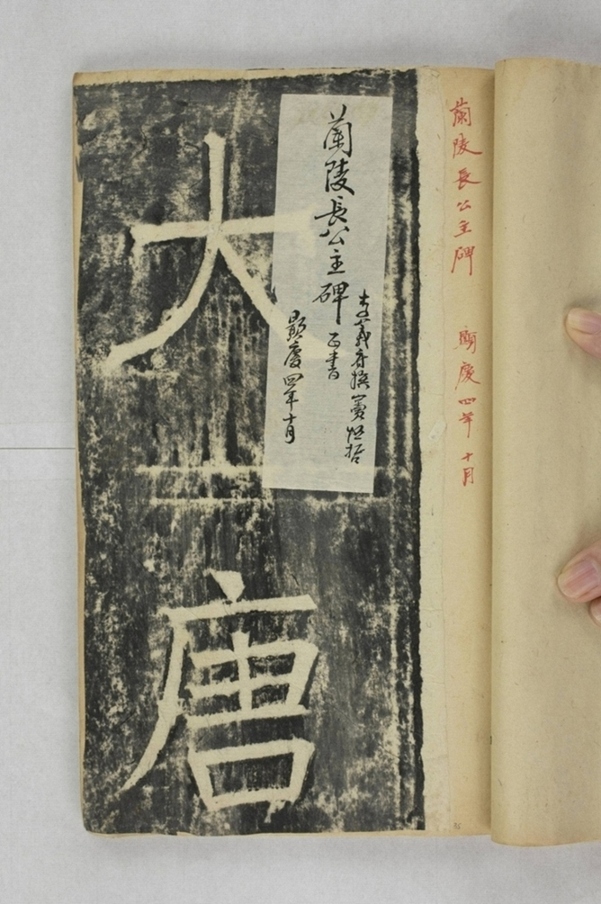 蘭陵長公主碑 顯慶四年十月
蘭陵長公主碑
李義府撰 竇懷哲
正書
顯慶四年十月
大唐